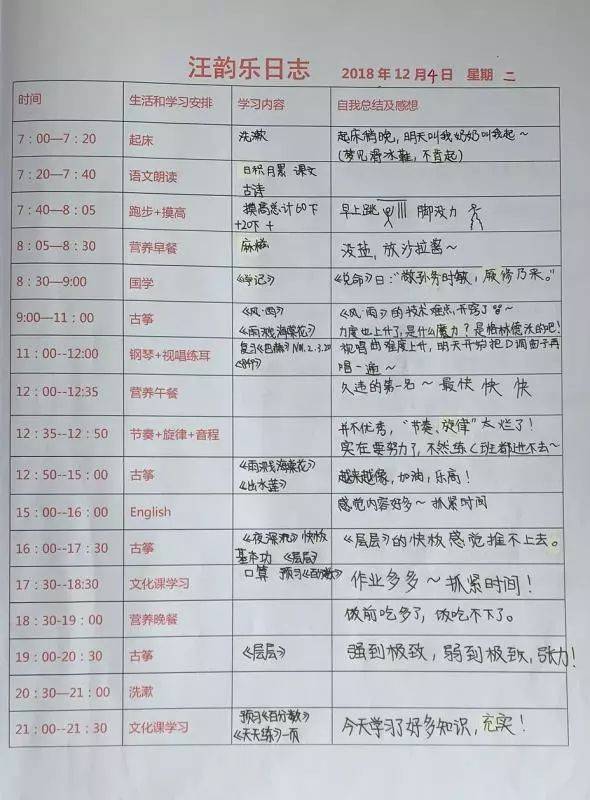 汪韵乐日志 2018年12月4日 星期 二
时间 生活和学习安排 学习内容 自我总结及感想
7：00—7：20 起床 洗漱 起床稍晚，明天叫我奶奶叫我起～
(梦见滑冰鞋，不肯起)
7：20—7：40 语文朗读 日积月累 课文
古诗
7：40—8：05 跑步+摸高 摸高总计60下
+20下 + 早上跳 脚没力
8：05—8：30 营养早餐 麻糍 没盐，放沙拉酱～
8：30—9:00 国学 《学记》 《兑命》曰：“敬孙务时敏，厥修乃来。”
9:00—11：00 古筝 《风·雨》
《雨溅海棠花》 《风·雨》的技术难点，开窍了
力度也上升了，是什么魔力？是格林德沃的吧！
11：00--12:00 钢琴+视唱练耳 复习 NO1.2.3.20
视唱曲难度上升，明天开始把D调曲子再
唱一遍～
12：00--12:35 营养午餐 久违的第一名～最快 快 快
12：35--12：50 节奏+旋律+音程 并不优秀，“节奏、旋律”太烂了！
实在要努力了，不然练C班都进不去～
12：50--15：00 古筝 《雨溅海棠花》
《出水莲》 越来越像，加油，乐高！
15：00--16：00 English 感觉内容好多～抓紧时间
16：00--17：30 古筝 《夜深沉》快板
基本功 《层层》 《层层》的快板感觉推不上去。
17：30--18:30 文化课学习 口算 预习《百分数》 作业多多～抓紧时间！
18：30-19：00 营养晚餐 饭前吃多了，饭吃不下了。
19：00-20：30 古筝 《层层》 强到极致，弱到极致，张力！
20：30—21：00 洗漱
21：00--21：30 文化课学习 预习《百分数》
《天天练》一页 今天学习了好多知识，充实！